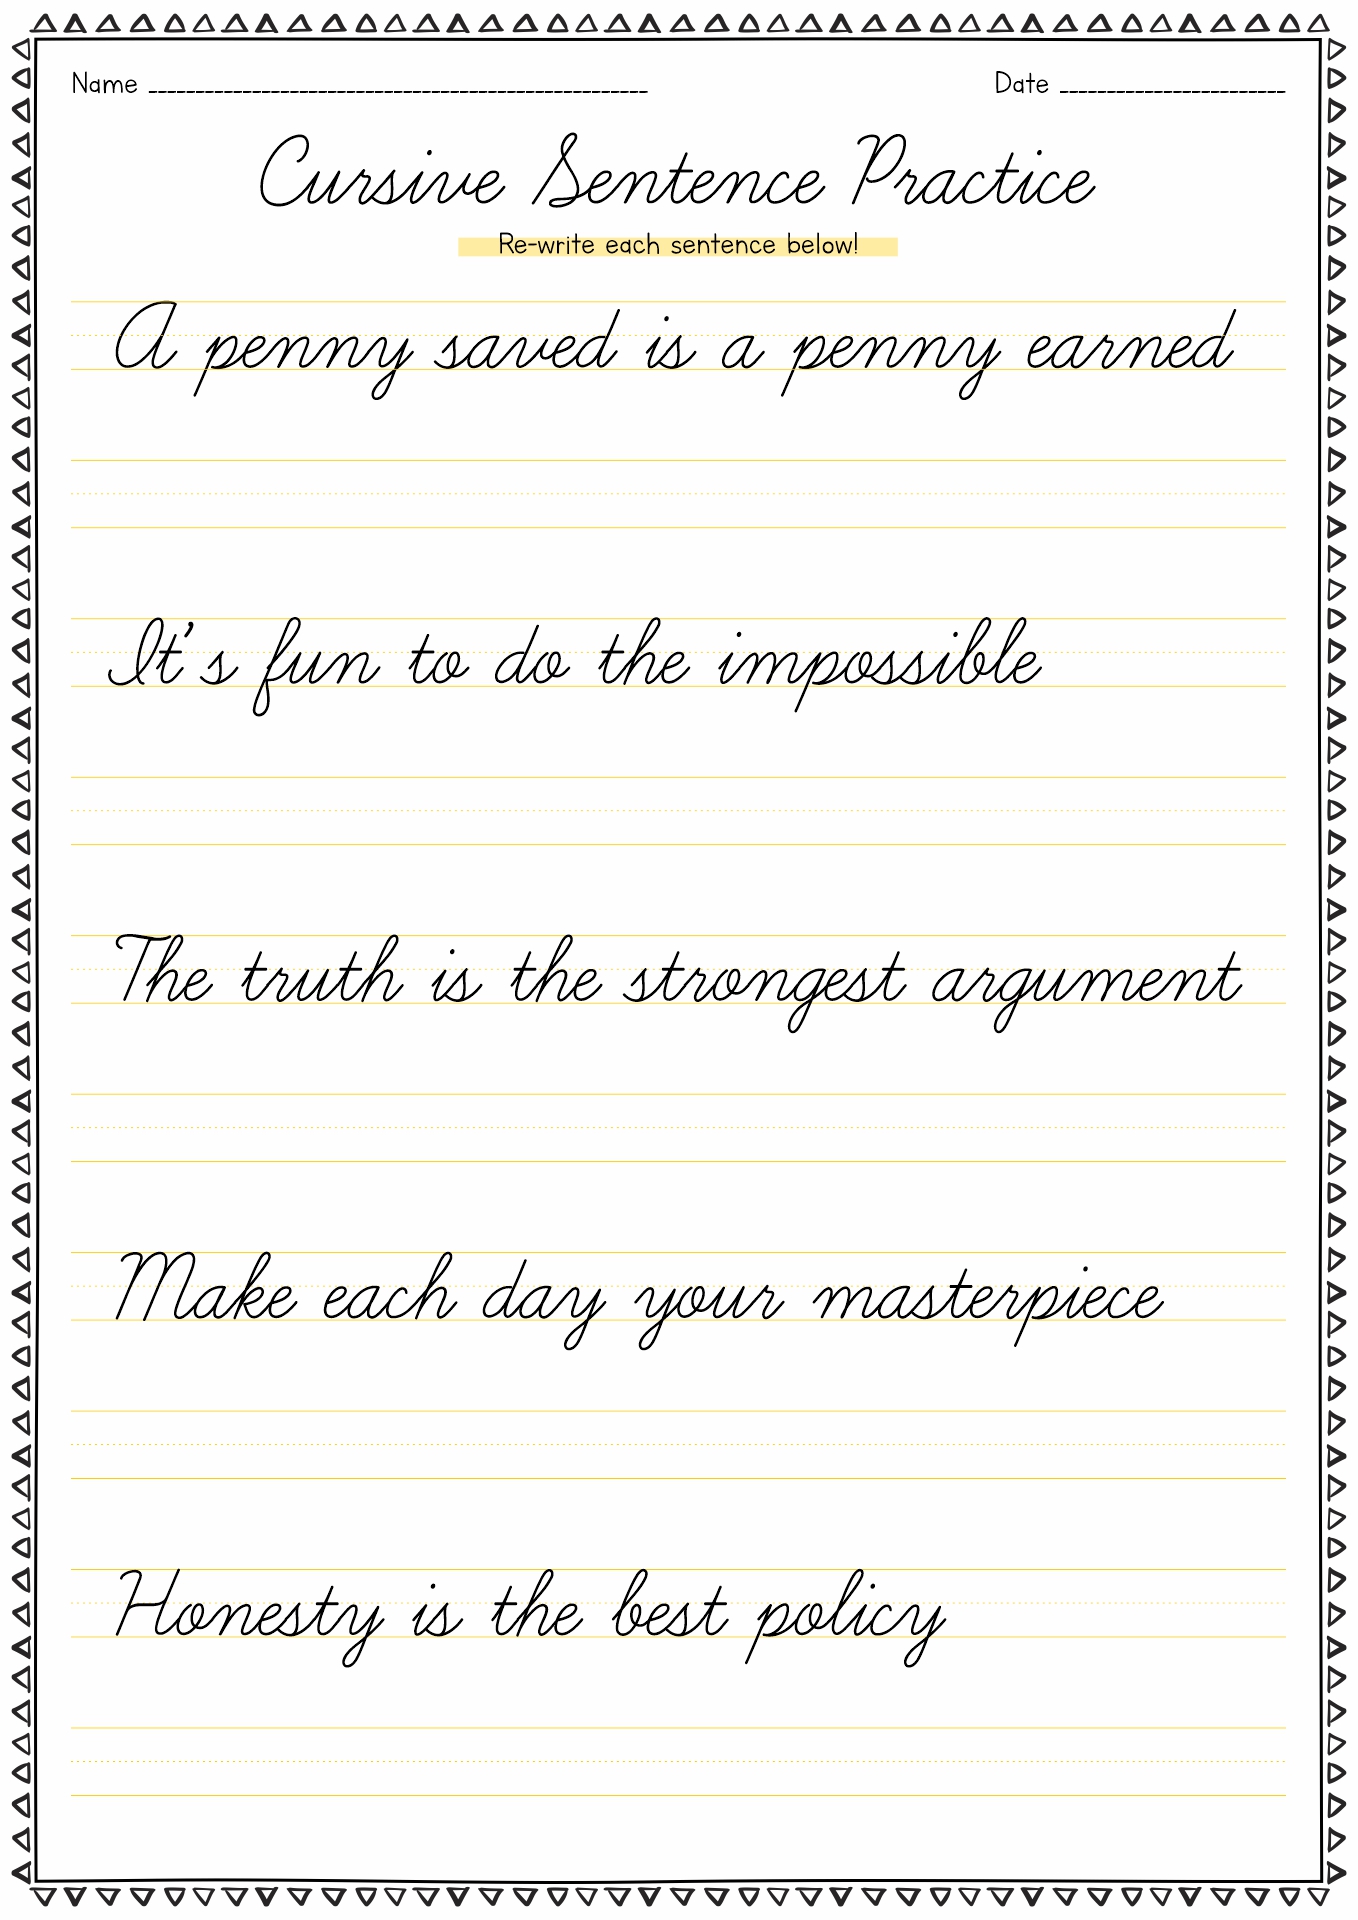 Name
Date
Cursive Sentence Practice
Re-write each sentence below!
A penny saved is a penny earned
It's fun to do the impossible
The truth is the strongest argument
Make each day your masterpiece
Honesty is the best policy